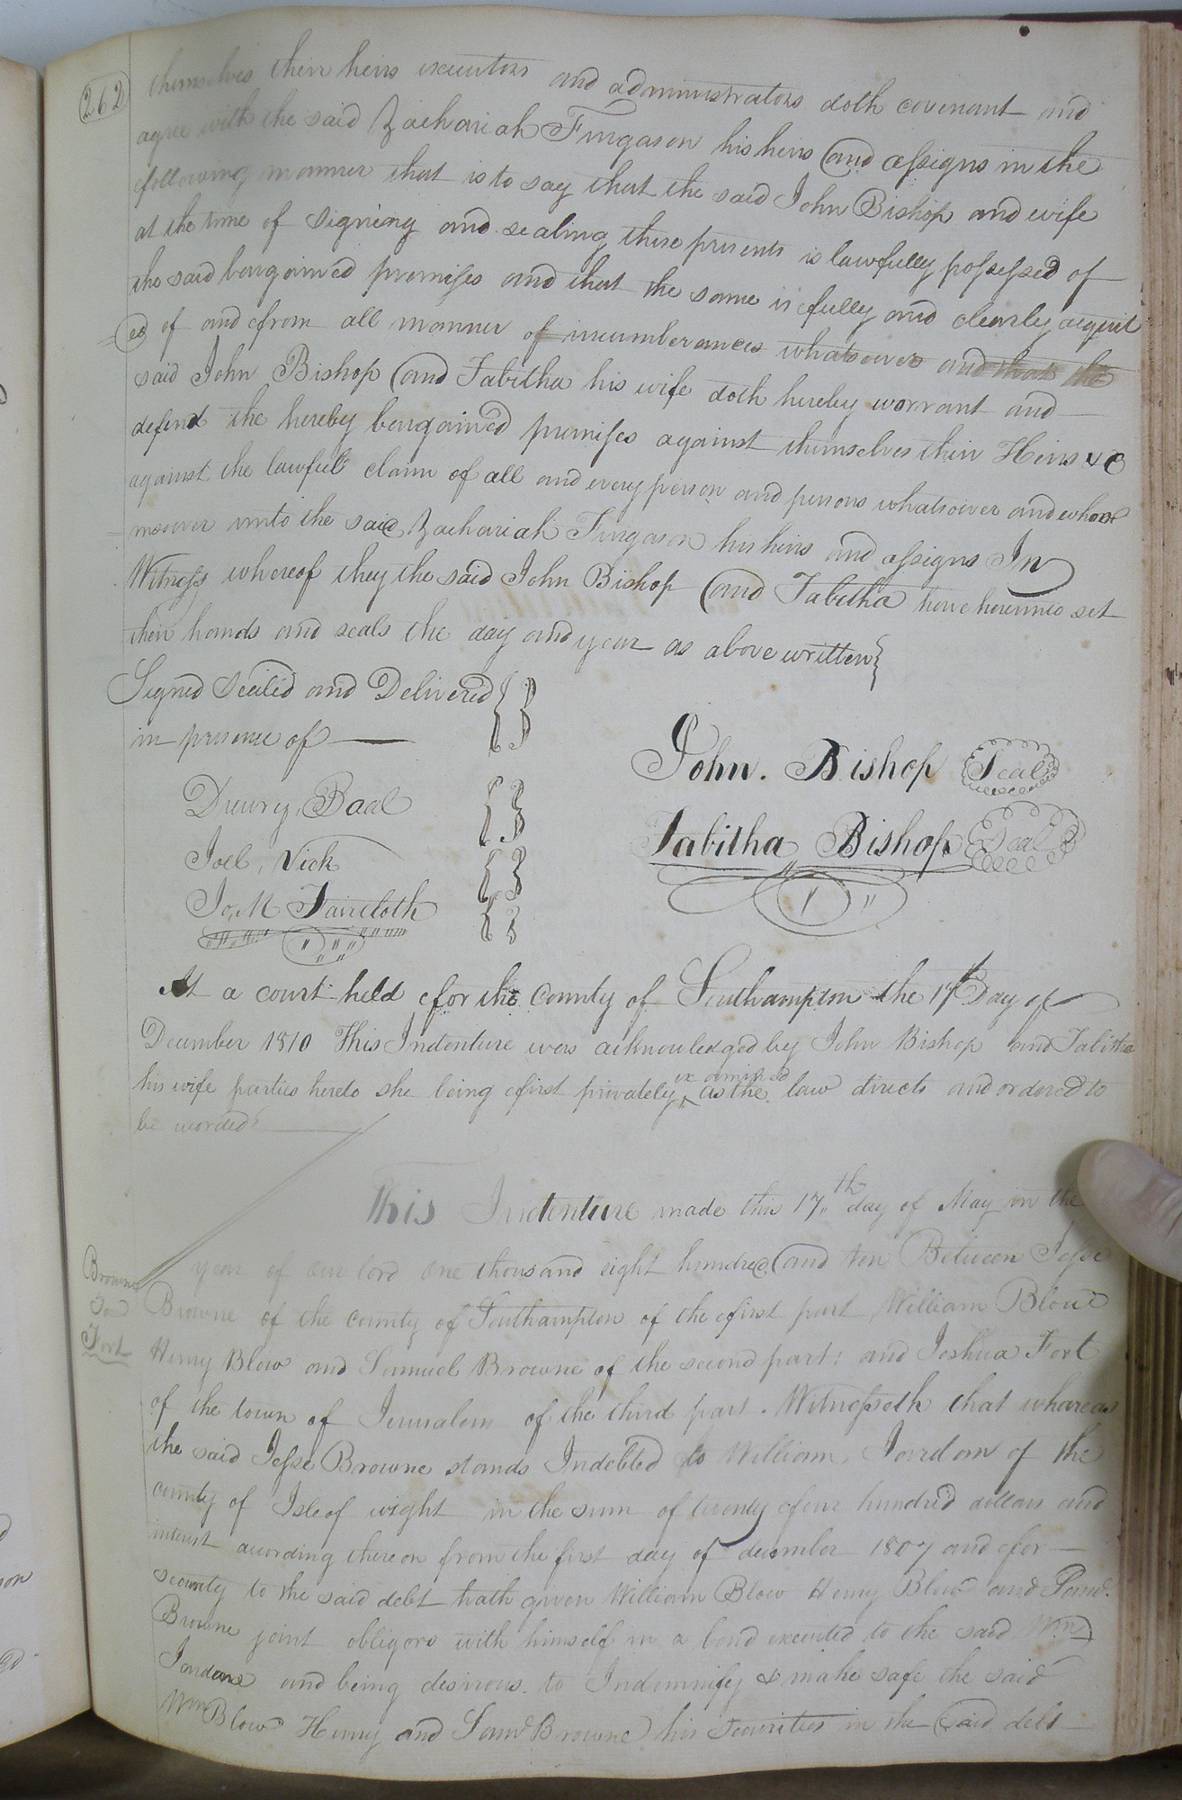 262
themselves their heirs executors and administrators doth covenant and
agree with the said Zachariah Fingason his heirs and assigns in the
following manner that is to say that the said John Bishop and wife
at the time of signing and sealing these presents is lawfully possessed of
the said bargained premises and that the same is fully and clearly acquit
ed of and from all manner of incumberances whatsoever and that the
said John Bishop and Tabitha his wife doth hereby warrant and
defend the hereby bargained premises against themselves their Heirs &c
against the lawfull claim of all and every person and persons whatsoever and whoso
mever unto the said Zachariah Fingason his heirs and assigns In
Witness whereof they the said John Bishop and Tabitha have hereunto set
their hands and seals the day and year as above written
Signed Sealed and Delivered
in presence of
Drewry Baal
Joel Vick
Jo, M Faircloth
John. Bishop Seal
Tabitha Bishop Seal
At a court held for the County of Southampton the 17th Day of
December 1810 This Indenture was acknowledged by John Bishop and Tabitha
his wife parties hereto she being first privately examined as the law directs and ordered to
be recorded
This Indenture made this 17th day of May in the
year of our lord one thousand eight hundred and ten Between Jesse
Browne
To
Fort
Browne of the county of Southampton of the first part William Blow
Henry Blow and Samuel Browne of the second part: and Joshua Fort
of the town of Jerusalem of the third part. Witnesseth that whareas
the said Jesse Browne stands Indebted to William Jourdan of the
county of Isle of wight in the sum of twenty four hundred dollars and
interest acording thereon from the first day of december 1807 and for
security to the said debt hath given William Blow Henry Blow and Saml.
Browne joint obligors with himself in a bond executed to the said Wm
Jordane and being desirous to Indemnify & make safe the said
Wm Blow Henry and Saml Browne his Securities in the said debt